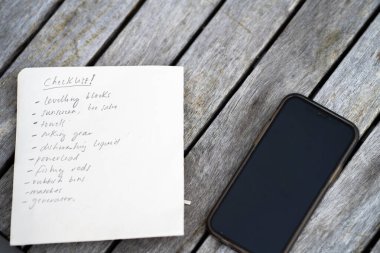 Checklist!
- levelling blocks
- sunscreen, bug
- towels
- gear
- dishwashing liquid
- powerlead
- fishing rods
- rubbish bins
- matches
- generator.